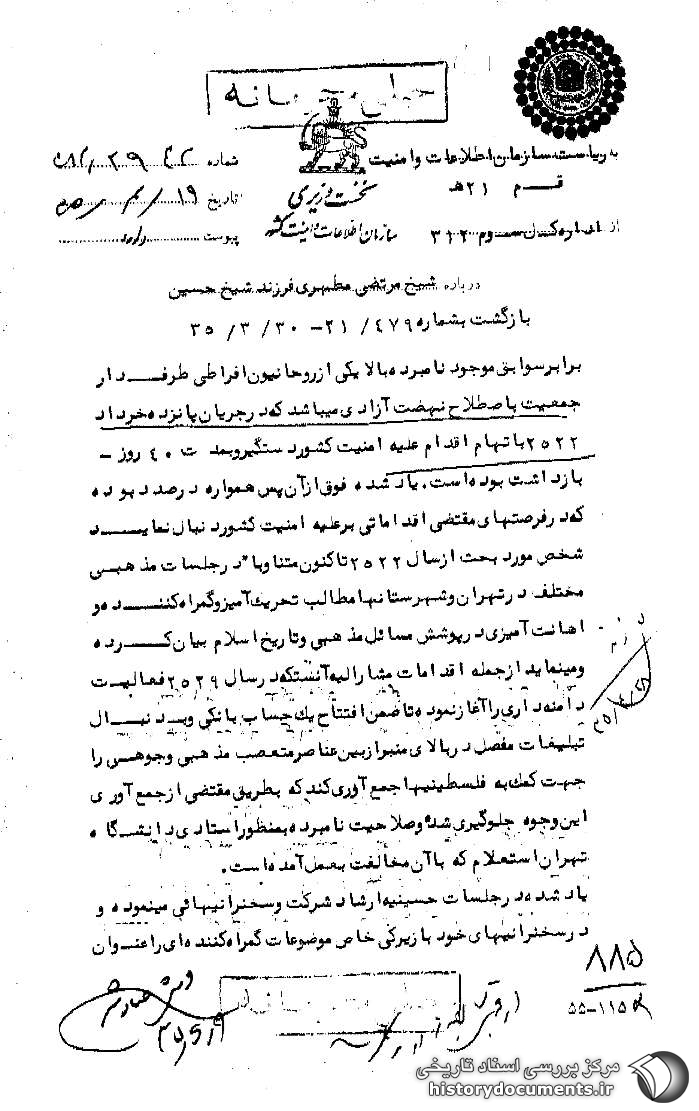 خیلی محرمانه
به ریاست سازمان اطلاعات و امنیت
قم ۲۱ ه‍
از اداره کل سوم ۳۱۲
نخست وزیری
سازمان اطلاعات و امنیت کشور
شماره
تاریخ
پیوست دارد
درباره شیخ مرتضی مطهری فرزند شیخ حسین
بازگشت بشماره ۴۷۹/ ۲۱-۳۵/۳/۳۰
برابر سوابق موجود نامبرده بالا یکی از روحانیون افراطی طرفدار
جمعیت باصطلاح نهضت آزادی میباشد که در جریان پانزده خرداد
۲۵۲۲ با تهام اقدام علیه امنیت کشور دستگیر و بمدت ۴۰ روز -
بازداشت بوده است. یاد شده فوق از آن پس همواره درصدد بوده
که در فرصتهای مقتضی اقداماتی بر علیه امنیت کشور دنبال نماید
شخص مورد بحث از سال ۲۵۲۲ تاکنون متناوبا" در جلسات مذهبی
مختلف در تهران و شهرستانها مطالب تحریک آمیز و گمراه کننده و
اهانت آمیزی در پوشش مسائل مذهبی و تاریخ اسلام بیان کرده
و مینماید از جمله اقدامات مشارالیه آنستکه در سال ۲۵۲۹ فعالیت
دامنه داری را آغاز نموده تا ضمن افتتاح یک حساب بانکی و بدنبال
تبلیغات مفصل در بالای منبر از بین عناصر متعصب مذهبی وجوهی را
جهت کمک به فلسطینیها جمع آوری کند که بطریق مقتضی از جمع آوری
این وجوه جلوگیری شد و صلاحیت نامبرده بمنظور استادی دانشگاه
تهران استعلام که با آن مخالفت بعمل آمده است.
یاد شده در جلسات حسینیه ارشاد شرکت و سخنرانیهائی مینموده و
در سخنرانیهای خود با زیرکی خاص موضوعات گمراه کننده ای را عنوان
۸۸۵
۵۵-۱۱۵
خیلی محرمانه
مرکز بررسی اسناد تاریخی
historydocuments.ir